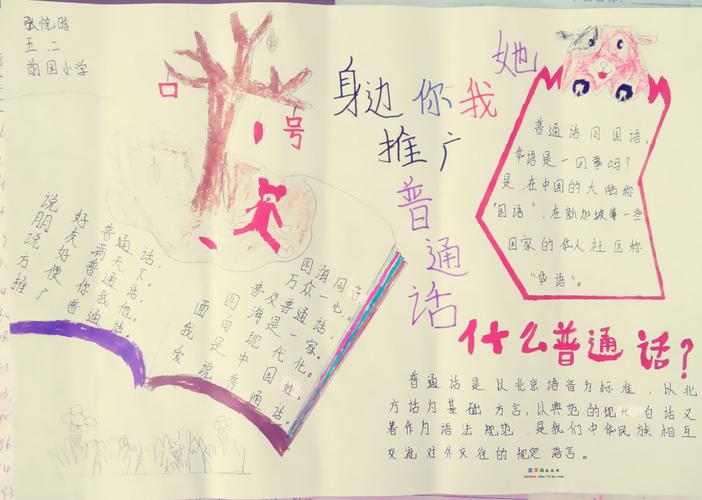 五.二
小学
口
号
身边你我她
推广
普通话
普通话同国语,
华语是一回事吗?
是,在中国的大陆称
"国语",在新加坡等一些
国家的华人社区称
"华语"。
说好普通话,
朋友两天下。
说好普通话,
方便你我他。
推广普通话
四海同音,
万众一心。
普及普通话,
四海是一家。
面向现代化。
我
爱说普通话。
什么普通话?
普通话是以北京语音为标准,以北
方话为基础方言,以典范的现代白话文
著作为语法规范,是我们中华民族相互
交流对外交往的规定语言。